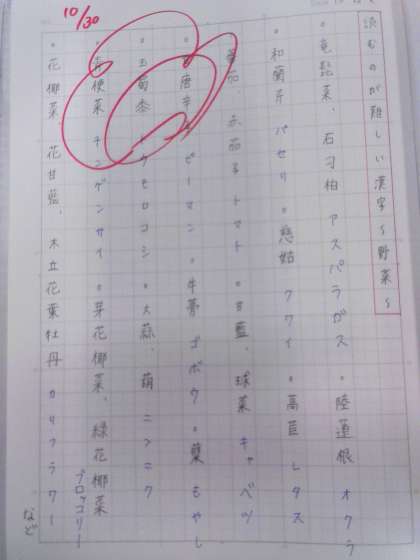 10/30
読むのが難しい漢字〜野菜〜
。竜髭菜、石刁柏 アスパラガス 。陸蓮根 オクラ
。和蘭芹 パセリ 。慈姑 クワイ 。高苣 レタス
蕃茄、赤茄子 トマト 。甘藍、球菜 キャベツ
唐辛子 ピーマン 。牛蒡 ゴボウ 。蘖 もやし
。玉蜀黍 トウモロコシ 。大蒜、葫 ニンニク
。青梗菜 チンゲンサイ 。芽花椰菜、緑花椰菜 ブロッコリー
。花椰菜、花甘藍、木立花葉牡丹 カリフラワー など